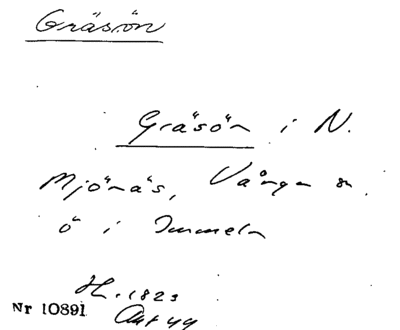 Gräsön
Gräsön i N.
Mjönäs, Vånga sn
ö i Immeln
H. 1823
Nr 10891
Akt 49